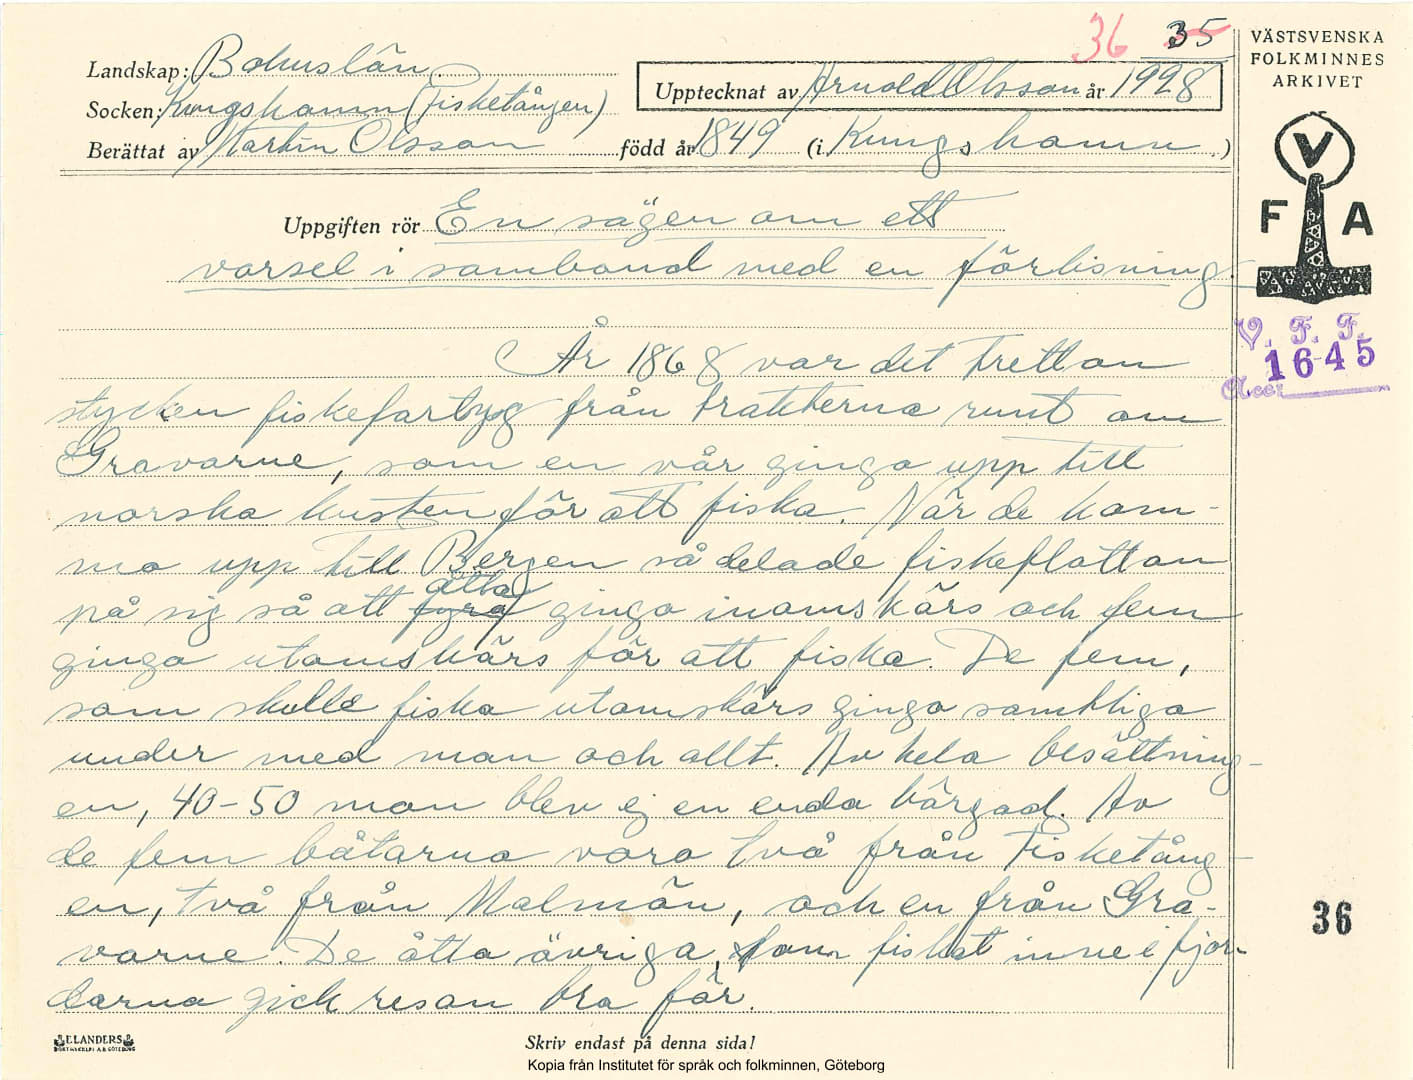 36 35
Landskap: Bohuslän.
Socken: Kungshamn (Fisketången)
Berättat av Martin Olsson född år 1849 (i Kungshamn.)
Upptecknat av Arnold Olsson år 1928
VÄSTSVENSKA
FOLKMINNES
ARKIVET
V
F A
V. F. F.
1645
Acc:
Uppgiften rör En sägen om ett
varsel i samband med en förlisning.
År 1868 var det tretton
stycken fiskefartyg från trakterna runt om
Gravarne, som en vår gingo upp till
norska kusten för att fiska. När de kom-
mo upp till Bergen så delade fiskeflottan
åtta
på sig så att fyra gingo inomskärs och fem
gingo utomskärs för att fiska. De fem,
som skulle fiska utomskärs gingo samtliga
under med man och allt. Av hela besättning-
en, 40-50 man blev ej en enda bärgad. Av
de fem båtarna voro två från Fisketång-
en, två från Malmön, och en från Gra-
varne. De åtta övriga, som fiskat inne i fjor-
darna gick resan bra för.
36
ELANDERS
BOKTRYCKERI A.B. GÖTEBORG
Skriv endast på denna sida!
Kopia från Institutet för språk och folkminnen, Göteborg